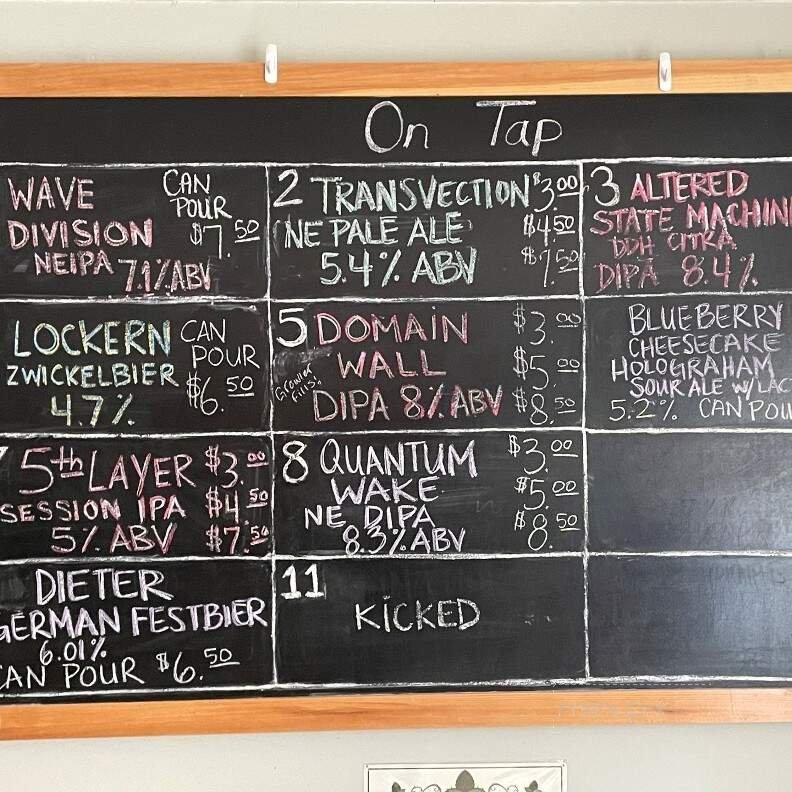 On Tap
WAVE CAN POUR
DIVISION $7.50
NEIPA 7.1% ABV
2 TRANSVECTION $3.00
NE PALE ALE $4.50
5.4% ABV $7.50
3 ALTERED
STATE MACHIN
DDH CITRA
DIPA 8.4%
LOCKERN CAN POUR
ZWICKELBIER $6.50
4.7%
5 DOMAIN $3.00
WALL $5.00
Growler Fills:
DIPA 8% ABV $8.50
BLUEBERRY
CHEESECAKE
HOLOGRAHAM
SOUR ALE W/LAC
5.2% CAN POU
5th LAYER $3.00
SESSION IPA $4.50
5% ABV $7.50
8 QUANTUM $3.00
WAKE $5.00
NE DIPA $8.50
8.3% ABV
DIETER
GERMAN FESTBIER
6.01%
CAN POUR $6.50
11
KICKED